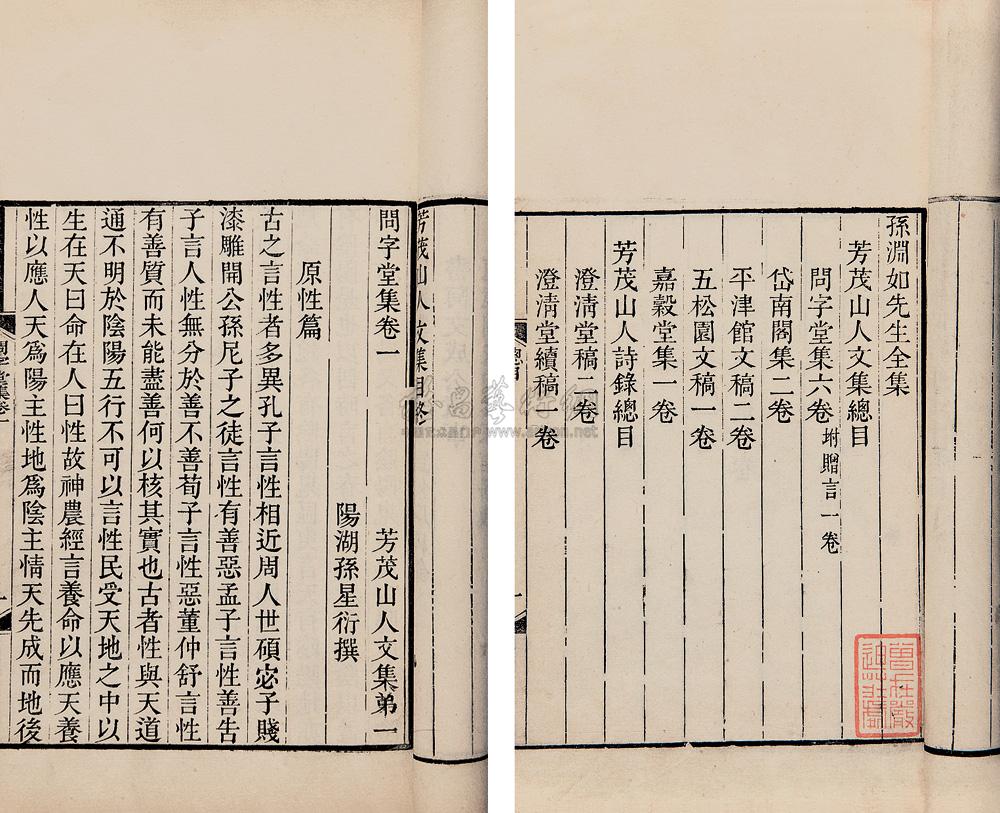 孫淵如先生全集
芳茂山人文集總目
問字堂集六卷 坿贈言一卷
岱南閣集二卷
平津館文稿二卷
五松園文稿一卷
嘉穀堂集一卷
芳茂山人詩錄總目
澄淸堂稿二卷
澄淸堂續稿一卷
總目
芳茂山人文集目終
問字堂集卷一 芳茂山人文集弟一
陽湖孫星衍撰
原性篇
古之言性者多異孔子言性相近周人世碩宓子賤
漆雕開公孫尼子之徒言性有善惡孟子言性善告
子言人性無分於善不善荀子言性惡董仲舒言性
有善質而未能盡善何以核其實也古者性與天道
通不明於陰陽五行不可以言性民受天地之中以
生在天曰命在人曰性故神農經言養命以應天養
性以應人天爲陽主性地爲陰主情天先成而地後